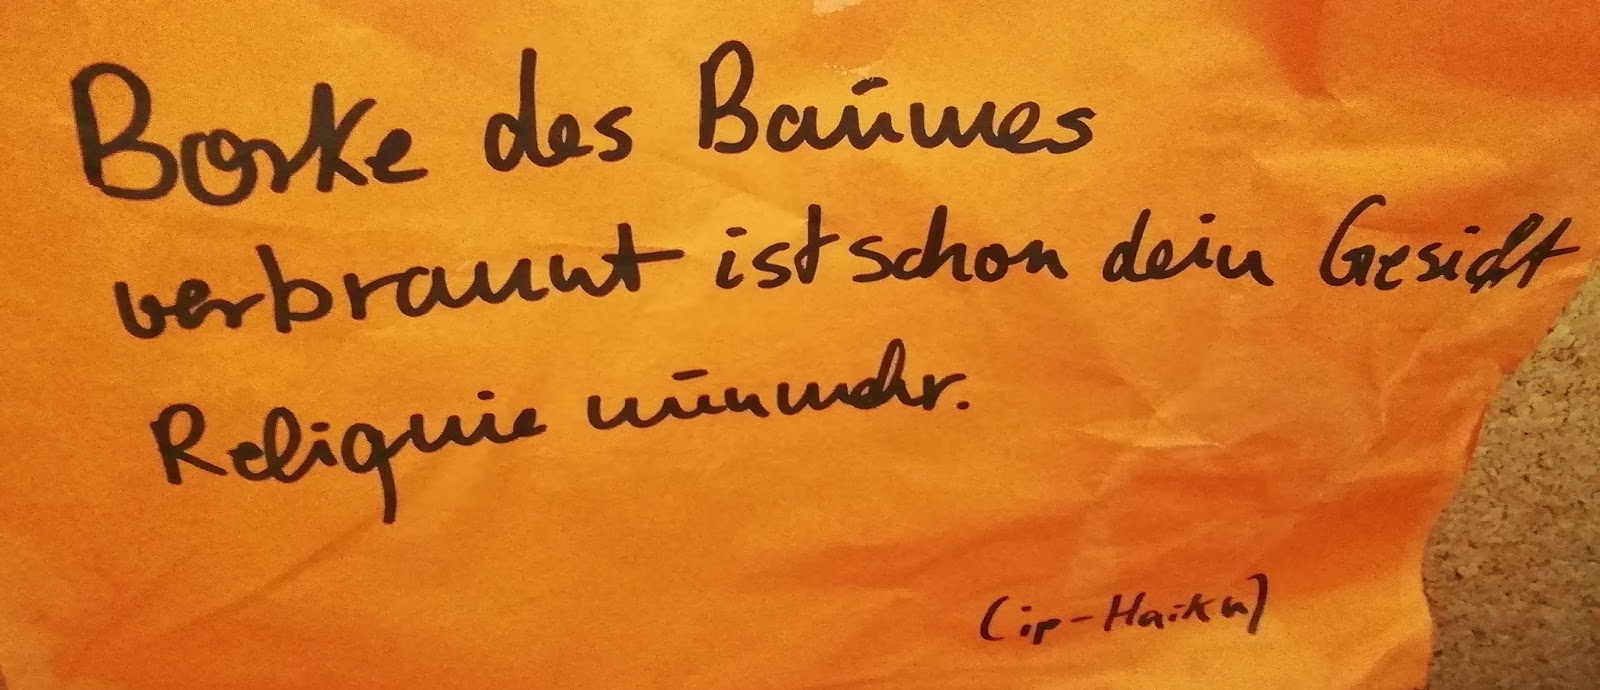 Borke des Baumes
verbrannt ist schon dein Gesicht
Reliquie nunmehr.
(ip-Haiku)